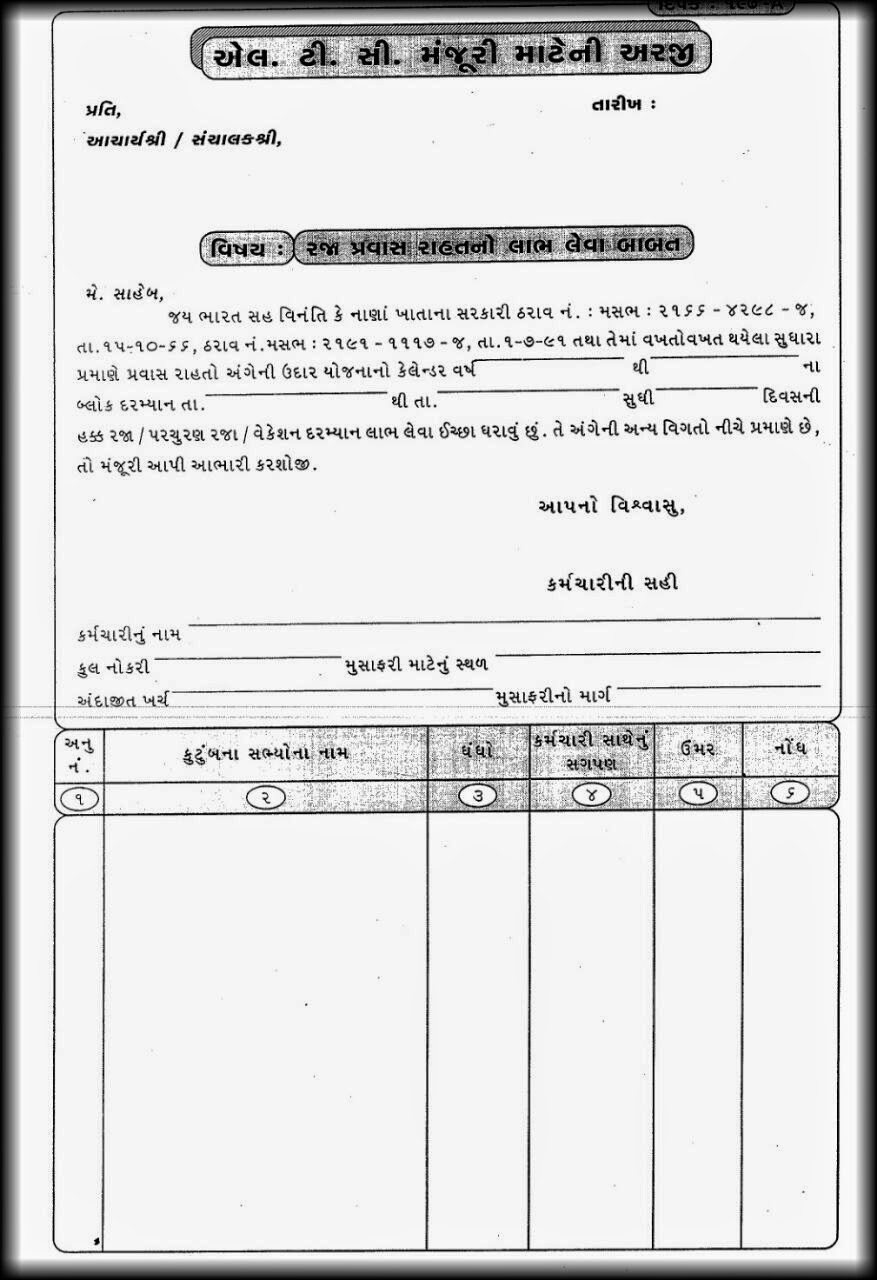 એલ. ટી. સી. મંજૂરી માટેની અરજી
પ્રતિ, તારીખ :
આચાર્યશ્રી / સંચાલકશ્રી,
વિષય : રજા પ્રવાસ રાહતનો લાભ લેવા બાબત
મે. સાહેબ,
જય ભારત સહ વિનંતિ કે નાણાં ખાતાના સરકારી ઠરાવ નં. : મસભ : ૨૧૬૬ - ૪૨૯૮ - જ,
તા.૧૫-૧૦-૬૬, ઠરાવ નં.મસભ : ૨૧૯૧ - ૧૧૧૭ - જ, તા.૧-૭-૯૧ તથા તેમાં વખતોવખત થયેલા સુધારા
પ્રમાણે પ્રવાસ રાહતો અંગેની ઉદાર યોજનાનો કેલેન્ડર વર્ષ થી ના
બ્લોક દરમ્યાન તા. થી તા. સુધી દિવસની
હક્ક રજા / પરચુરણ રજા / વેકેશન દરમ્યાન લાભ લેવા ઈચ્છા ધરાવું છું. તે અંગેની અન્ય વિગતો નીચે પ્રમાણે છે,
તો મંજૂરી આપી આભારી કરશોજી.
આપનો વિશ્વાસુ,
કર્મચારીની સહી
કર્મચારીનું નામ
કુલ નોકરી મુસાફરી માટેનું સ્થળ
અંદાજીત ખર્ચ મુસાફરીનો માર્ગ
અનુ નં. કુટુંબના સભ્યોના નામ ધંધો કર્મચારી સાથેનું સગપણ ઉંમર નોંધ
૧ ૨ ૩ ૪ ૫ ૬